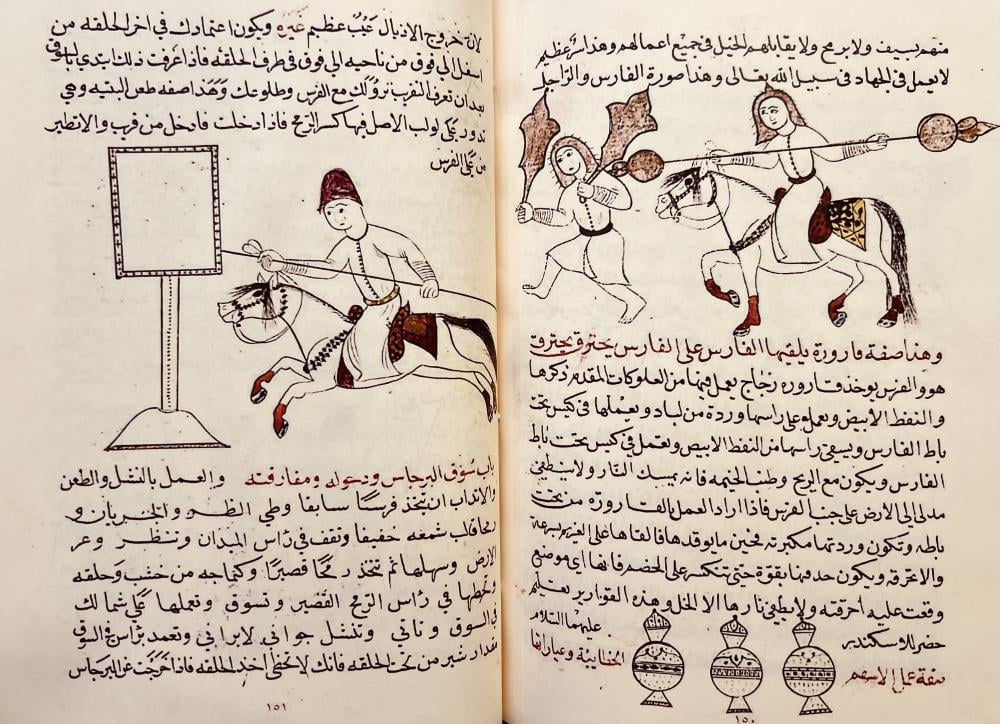 منهم بسيف ولا برمح ولا يقابلهم الخيل في جميع اعمالهم وهذا سر عظيم
لا يعمل في الجهاد في سبيل الله تعالى وهذا صورة الفارس والراجل
وهذا صفة قارورة يلقيها الفارس على الفارس يحترق يحترق
هو والفرس يوخذ قارورة زجاج يعمل فيها من العلوكات المقدم ذكرها
والنفط الابيض ويعملو على راسها وردة من لباد ويعملها في كيس تحت
باط الفارس ويسقي راسها من النفط الابيض ويعمل في كيس تحت باط
الفارس ويكون مع الريح وطنب الخيمه فانه يمسك النار ولا ينطفي
مدلى الى الارض على جنب الفرس فاذا اراد العمل بالقارورة من تحت
باطه وتكون وردتها مكبرته فحين ما يوقدها فالقاها على الغريم بسرعة
والا عرقه ويكون حدفها بقوة حتى تنكسر على الخصم فانها اي موضع
وقعت عليه احرقته ولا يطفي نارها الا الخل وهذه القوارير بتعليم
حضر للاسكندر
عليهما السلام
صفة عمل الاسهم
الخطاييه وعياراتها
١٥٠
لان خروج الاذيال عيب عظيم غيره ويكون اعتمادك في اخر الحلقه من
اسفل الى فوق من ناحيه الى فوق في طرف الحلقه فاذا عرفت ذلك ابتدي بالسوق
بعد ان تعرف التقرب نزولك مع الفرس وطلوعك وهذا صفه طعن البتيه وهي
تدور على لولب الاصل فيها كسر الرمح فاذا دخلت فادخل من قرب والا تطير
من على الفرس
باب سوق البرجاس ودخوله ومفارقته والعمل بالنشل والطعن
والانتداب ان تتخذ فرسا سابقا وطي الظهر والخبريان و
رمحا قلب شمعه خفيفا وتقف في راس الميدان وتنظر وعر
الارض وسهلها ثم تتخذ رمحا قصيرا وكماجه من خشب وحلقه
وتحطها في راس الرمح القصير وتسوق وتعملها على شمالك
في السوق وتاتي وتنشل جواني لا براني وتعمد براس في السوق
مقدار شبر من تحت الحلقه فانك لا تخطئ اخد الحلقه فاذا خرجت عن البرجاس
١٥١